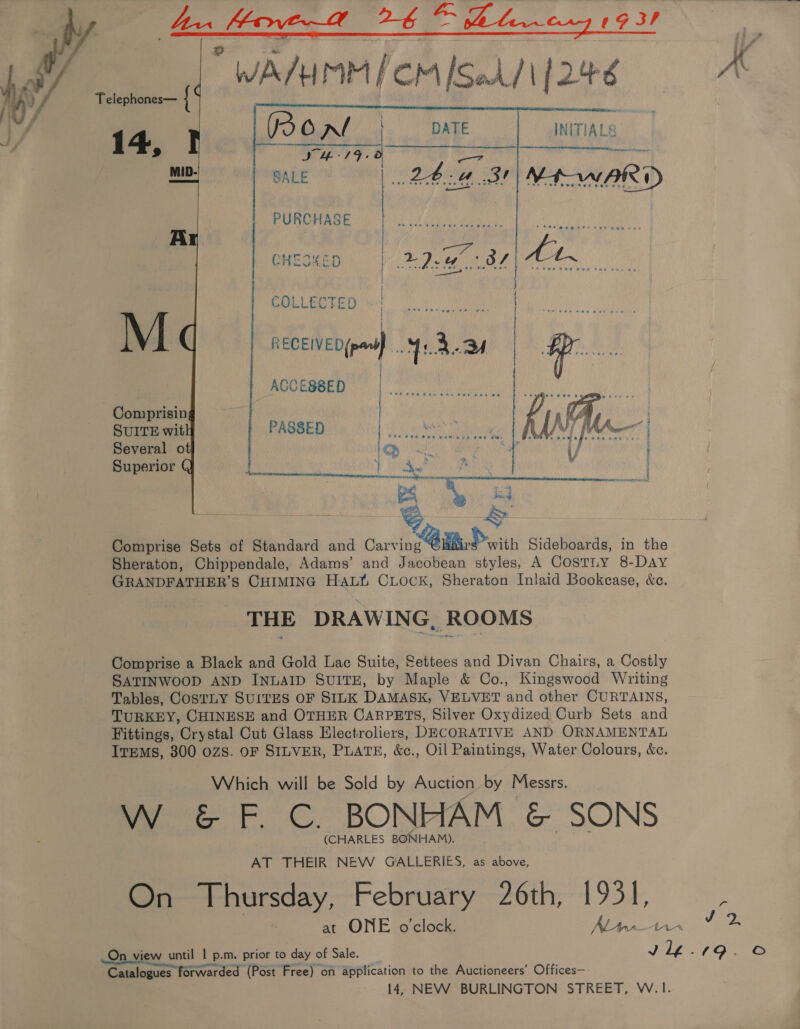 26 February 1931
WA/HMM/CM/Sal/1/246
Telephones—
BON DATE INITIALS
14,
MID-
SALE 26.2.31
PURCHASE
CHECKED 27. 31
COLLECTED
RECEIVED (part) 4.3.31
ACCESSED
Comprising
SUITE with PASSED
Several ot
Superior
Comprise Sets of Standard and Carving Chairs with Sideboards, in the
Sheraton, Chippendale, Adams' and Jacobean styles, A COSTLY 8-DAY
GRANDFATHER'S CHIMING HALL CLOCK, Sheraton Inlaid Bookcase, &c.
THE DRAWING ROOMS
Comprise a Black and Gold Lac Suite, Settees and Divan Chairs, a Costly
SATINWOOD AND INLAID SUITE, by Maple & Co., Kingswood Writing
Tables, COSTLY SUITES OF SILK DAMASK, VELVET and other CURTAINS,
TURKEY, CHINESE and OTHER CARPETS, Silver Oxydized Curb Sets and
Fittings, Crystal Cut Glass Electroliers, DECORATIVE AND ORNAMENTAL
ITEMS, 300 OZS. OF SILVER, PLATE, &c., Oil Paintings, Water Colours, &c.
Which will be Sold by Auction by Messrs.
W & F. C. BONHAM & SONS
(CHARLES BONHAM).
AT THEIR NEW GALLERIES, as above,
On Thursday, February 26th, 1931,
at ONE o'clock.
On view until 1 p.m. prior to day of Sale.
Catalogues forwarded (Post Free) on application to the Auctioneers' Offices—
14, NEW BURLINGTON STREET, W.1.